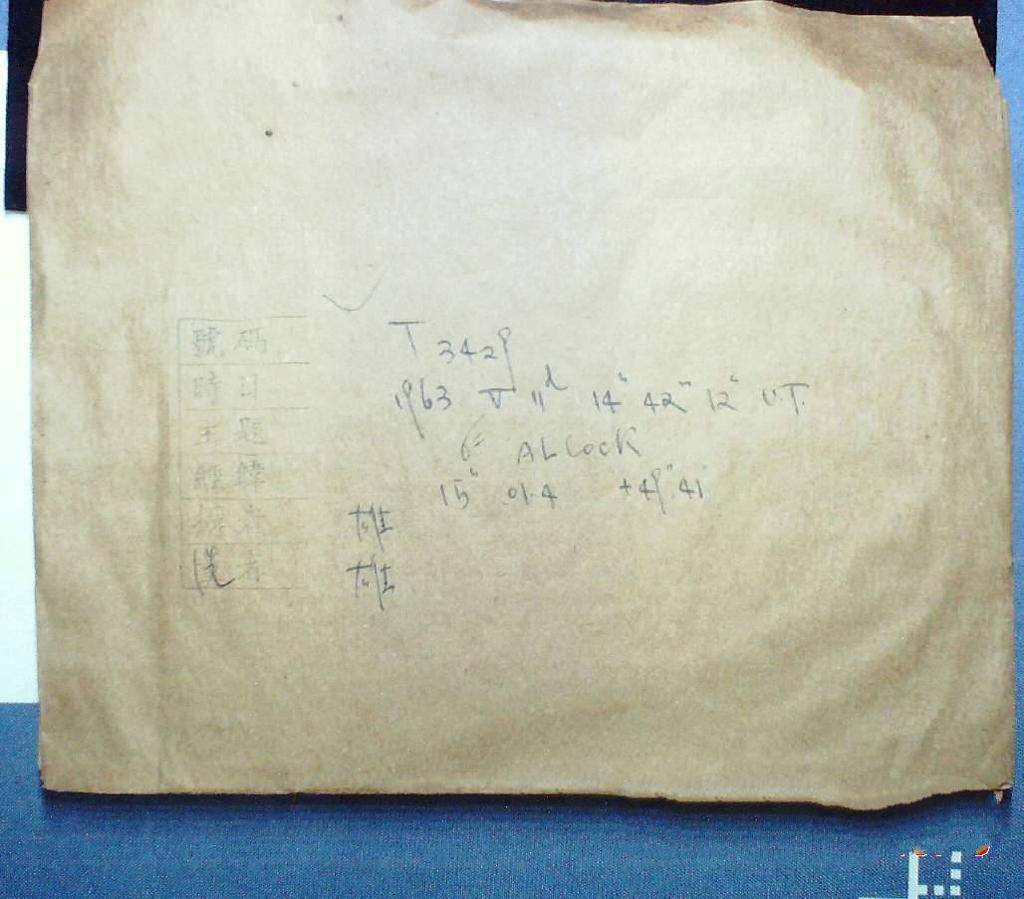 號碼 T 3429
時日 1963 V 11d 14h 42m 12s U.T.
主題 ALCOCK
經緯 15h 01.4 +49° 41'
雄
洗者 雄